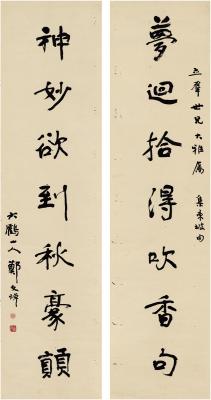 夢迴拾得吹香句
羣世兄大雅屬
集東坡句
神妙欲到秋豪顛
大鶴山人鄭文焯